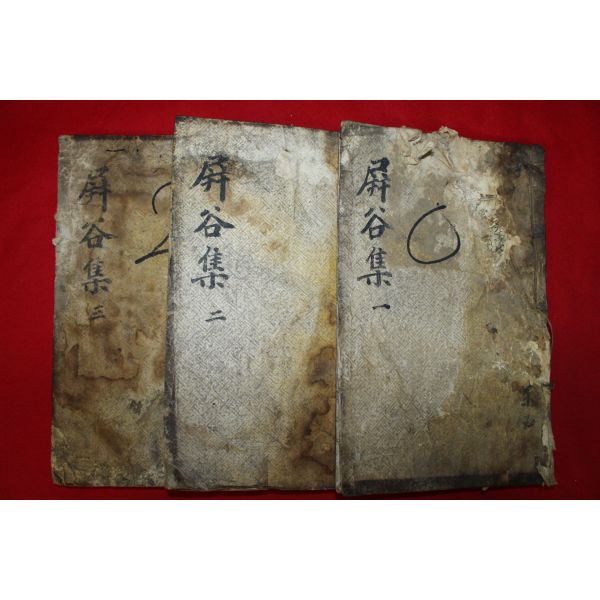 屛谷集 一
屛谷集 二
屛谷集 三